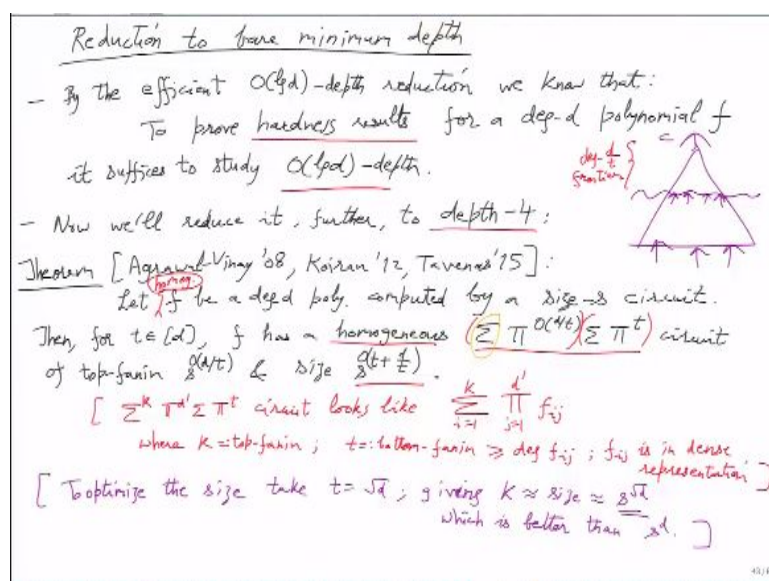 Reduction to bare minimum depth
- By the efficient O(lgd)-depth reduction we know that:
To prove hardness results for a deg-d polynomial f
it suffices to study O(lgd)-depth.
deg-d/t
frontier
C
- Now we'll reduce it, further, to depth-4:
Theorem [Agrawal-Vinay '08, Koiran '12, Tavenas '15]:
homog.
Let f be a deg d poly. computed by a size-s circuit.
Then, for t∈[d], f has a homogeneous (Σ Π^{O(d/t)})(Σ Π^t) circuit
of top-fanin s^{O(d/t)} & size s^{O(t+d/t)}.
[ Σ^k Π^{d'} Σ Π^t circuit looks like Σ_{i=1}^{k} Π_{j=1}^{d'} f_{ij}
where k =: top-fanin ; t =: bottom-fanin ≥ deg f_{ij} ; f_{ij} is in dense
representation ]
[ To optimize the size take t = √d ; giving k ≈ size ≈ s^{√d}
which is better than s^d. ]